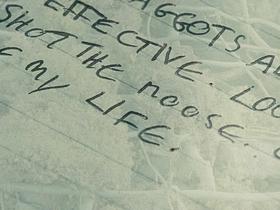 MAGGOTS A
EFFECTIVE. LOO
SHOT THE MOOSE.
MY LIFE.